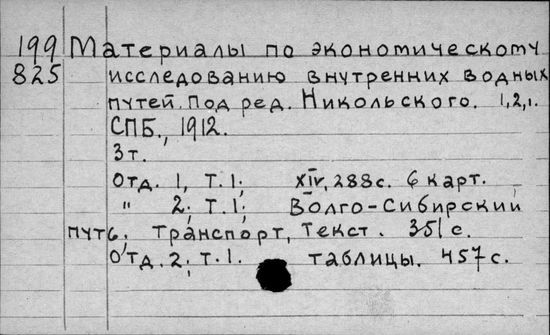 199 Материалы по экономическому
825 исследованию внутренних водных
путей. Под ред. Никольского. 1,2,1.
СПБ., 1912.
3 т.
Отд. 1, т. 1; XIV, 288 с. 6 карт.
" 2; т. 1; Волго-Сибирский
путь. Транспорт, текст. 351 с.
Отд. 2; т. 1. таблицы. 457 с.